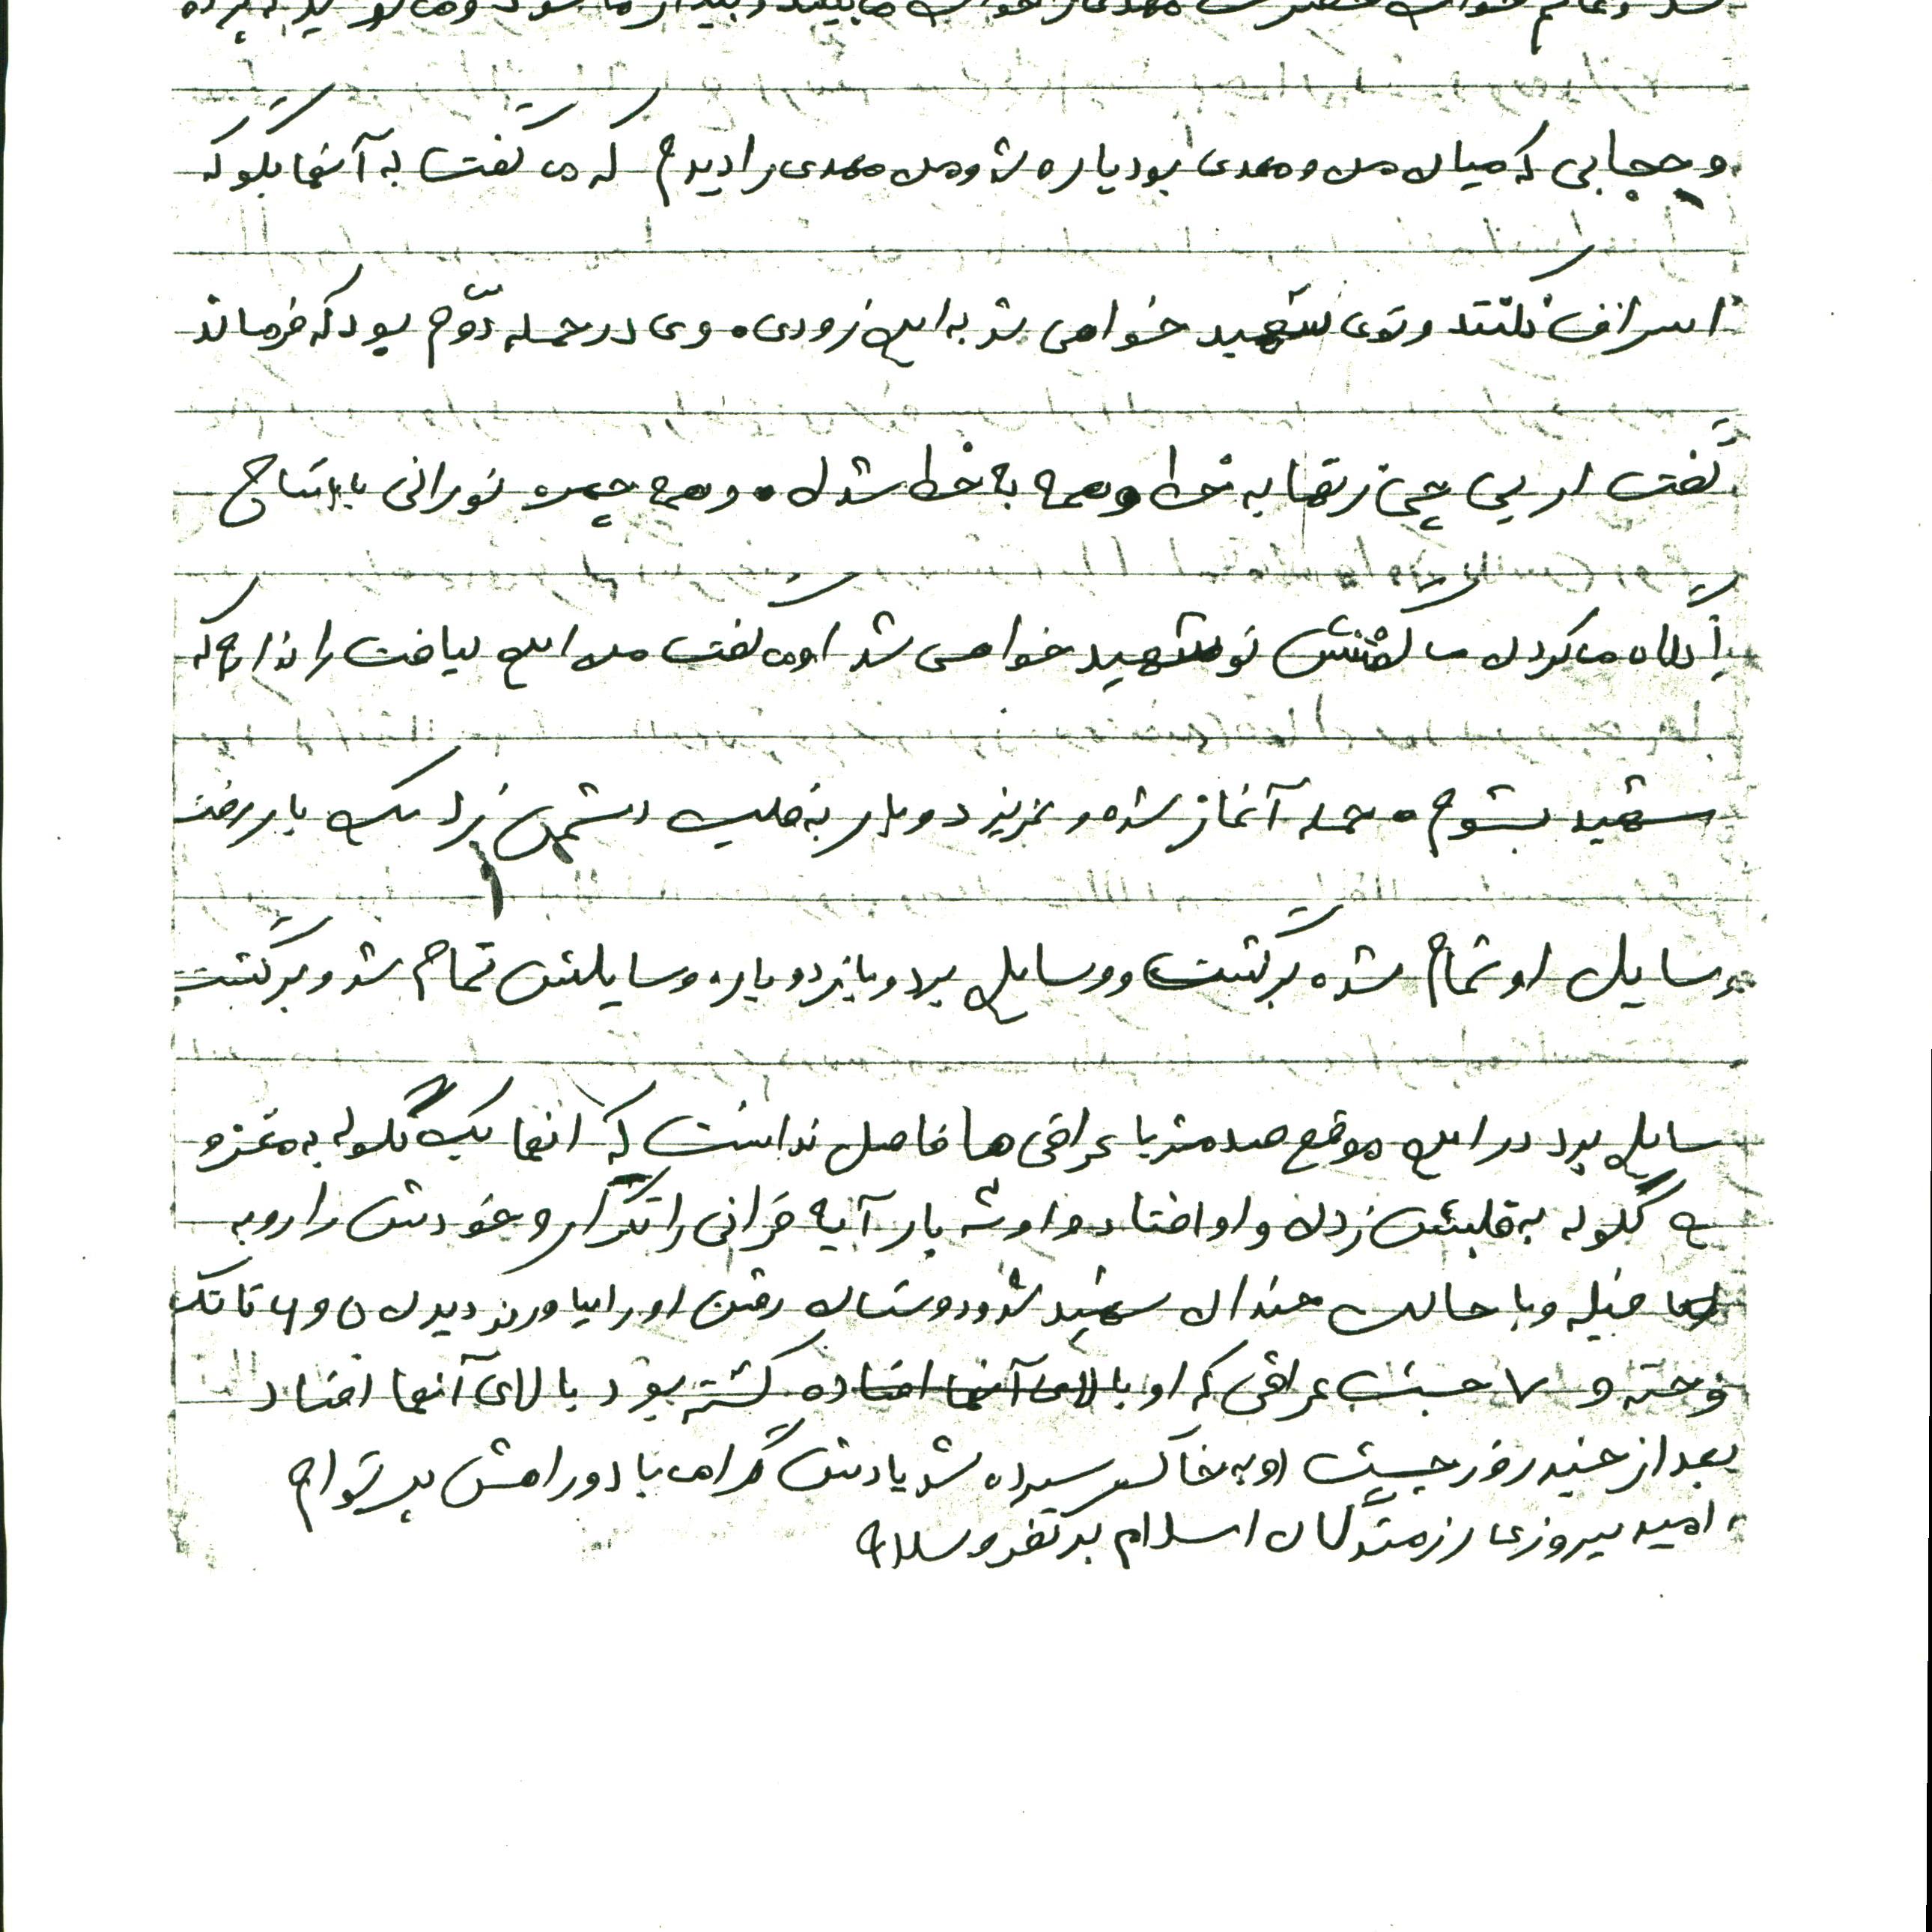 و حجابی که میان من و مهدی بود پاره شد و من مهدی را دیدم که می گفت به آنها بگو که
اسراف نکنند و توی شهید خواهی شد به این زودی . وی در حمله دوّم بود که فرمانده
گفت ار پی جی زنها به خط و همه به خط شدن . و همه چهره نورانی
نگاه می کردن می گفتنش تو شهید خواهی شد او می گفت من این لیاقت را ندارم که
شهید بشوم . حمله آغاز شده و عزیز دوبار به قلب دشمن زد یک بار رفت
وسایل او تمام شده برگشت و وسایل برد و باز دوباره وسایلش تمام شد و برگشت
سایل برد در این موقع صد متر با عراقی ها فاصل نداشت که انها یک گلوله به مغز و
گلوله به قلبش زدن و او افتاد و او سه بار آیه قرانی را تکرار و خودش را روبه
قبله و با حالت خندان شهید شد و دوستان رفتن او را بیاورند دیدن تا تانک
سوخته و ۷ جسد عراقی که او کشته بود بالای آنها افتاد
بعد از چند روز جسدش او به خاک سپرده شد یادش گرامی باد و راهش پر توام
امید پیروزی رزمندگان اسلام بر کفر و سلام